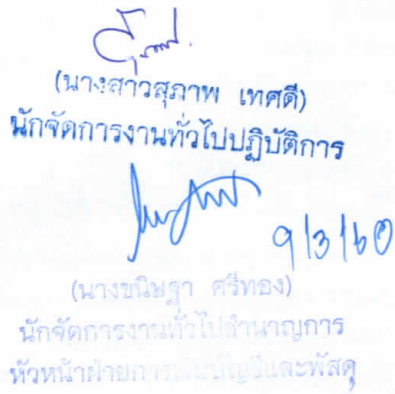 (นางสาวสุภาพ เทศดี)
นักจัดการงานทั่วไปปฏิบัติการ
9/3/60
(นางขนิษฐา ศรีทอง)
นักจัดการงานทั่วไปชำนาญการ
หัวหน้าฝ่ายการเงินบัญชีและพัสดุ